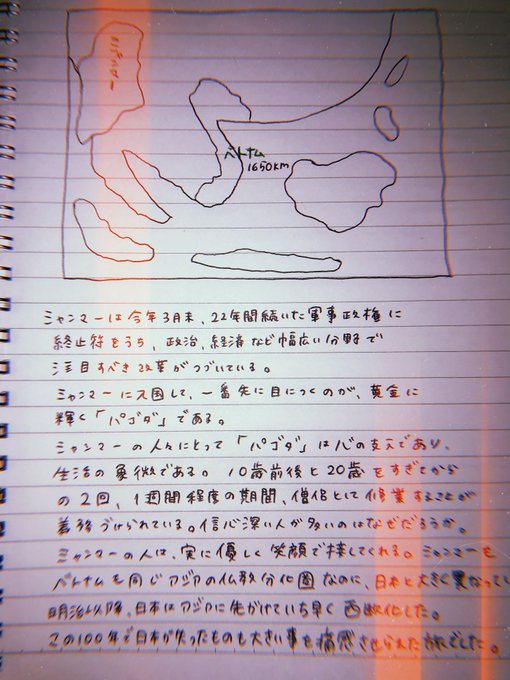 ミャンマー
ベトナム
1650km
ミャンマーは今年3月末、22年間続いた軍事政権に
終止符をうち、政治、経済など幅広い分野で
注目すべき改革がつづいている。
ミャンマーに入国して、一番先に目につくのが、黄金に
輝く「パゴダ」である。
ミャンマーの人々にとって「パゴダ」は心の支えであり、
生活の象徴である。10歳前後と20歳をすぎてから
の2回、1週間程度の期間、僧侶として修業することが
義務づけられている。信心深い人が多いのはなぜだろうか。
ミャンマーの人は、実に優しく笑顔で接してくれる。ミャンマーも
ベトナムも同じアジアの仏教分化圏なのに、日本と大きく異なってい
明治以降、日本はアジアに先がけていち早く西欧化した。
この100年で日本が失ったものも大きい事を痛感させられた旅でした。